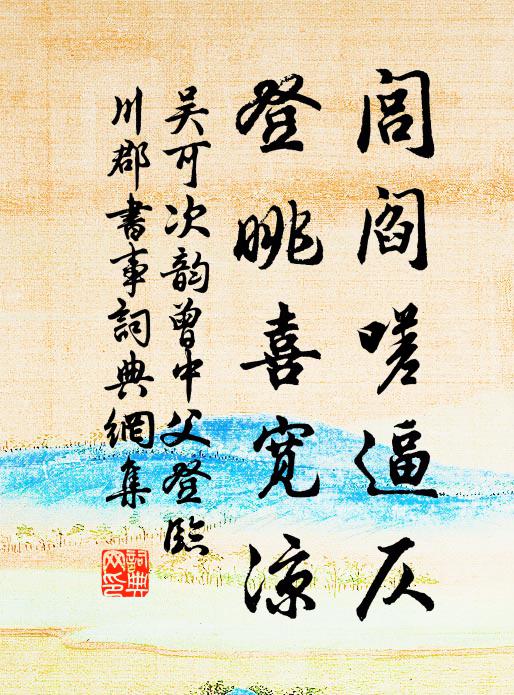 閭閻嗟逼仄
登眺喜寬涼
吳可次韵曾中父登臨
川郡書事詞典網集
詞典
网印